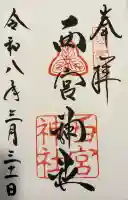 奉拝
西宮神社
西宮
神社
令和八年三月三十一日